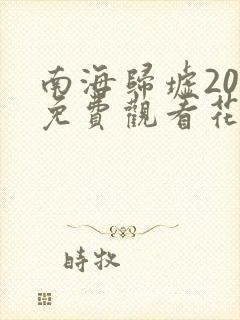 南海歸墟20
免費觀看花
時牧